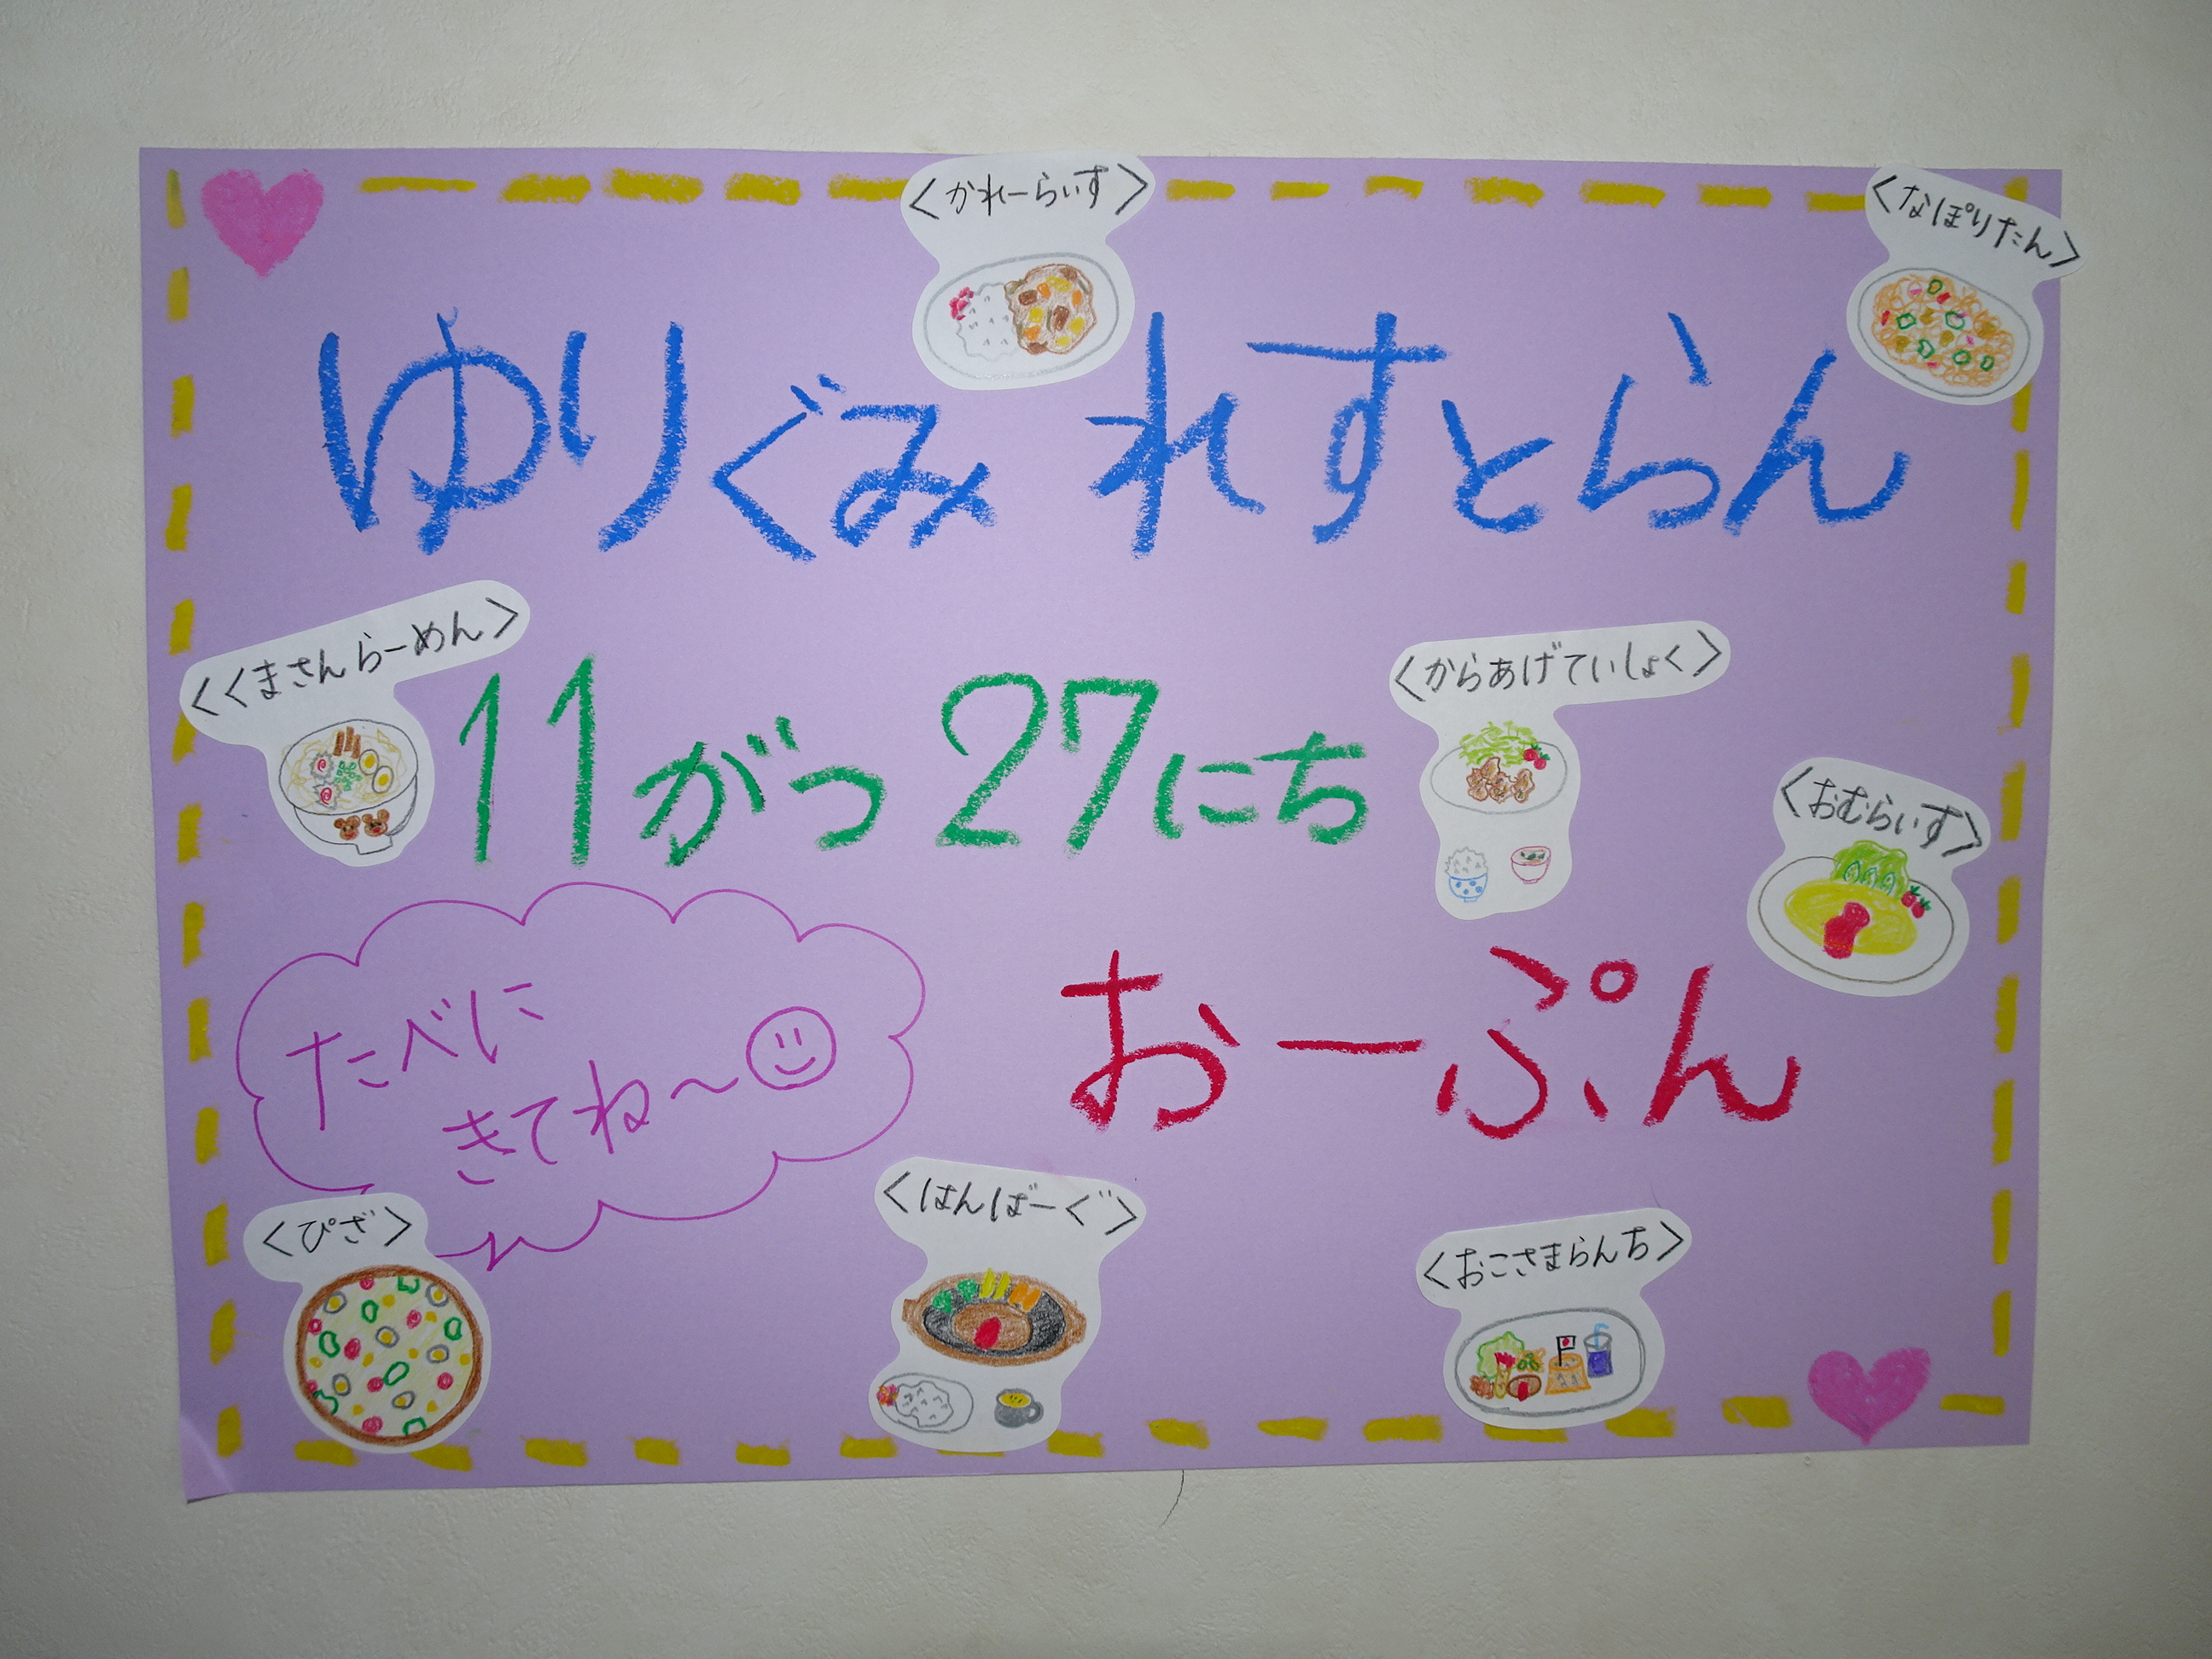 <かれーらいす>
<なぽりたん>
ゆりぐみ れすとらん
<くまさんらーめん>
<からあげていしょく>
11がつ27にち
<おむらいす>
たべに
きてね〜
おーぷん
<ぴざ>
<はんばーぐ>
<おこさまらんち>